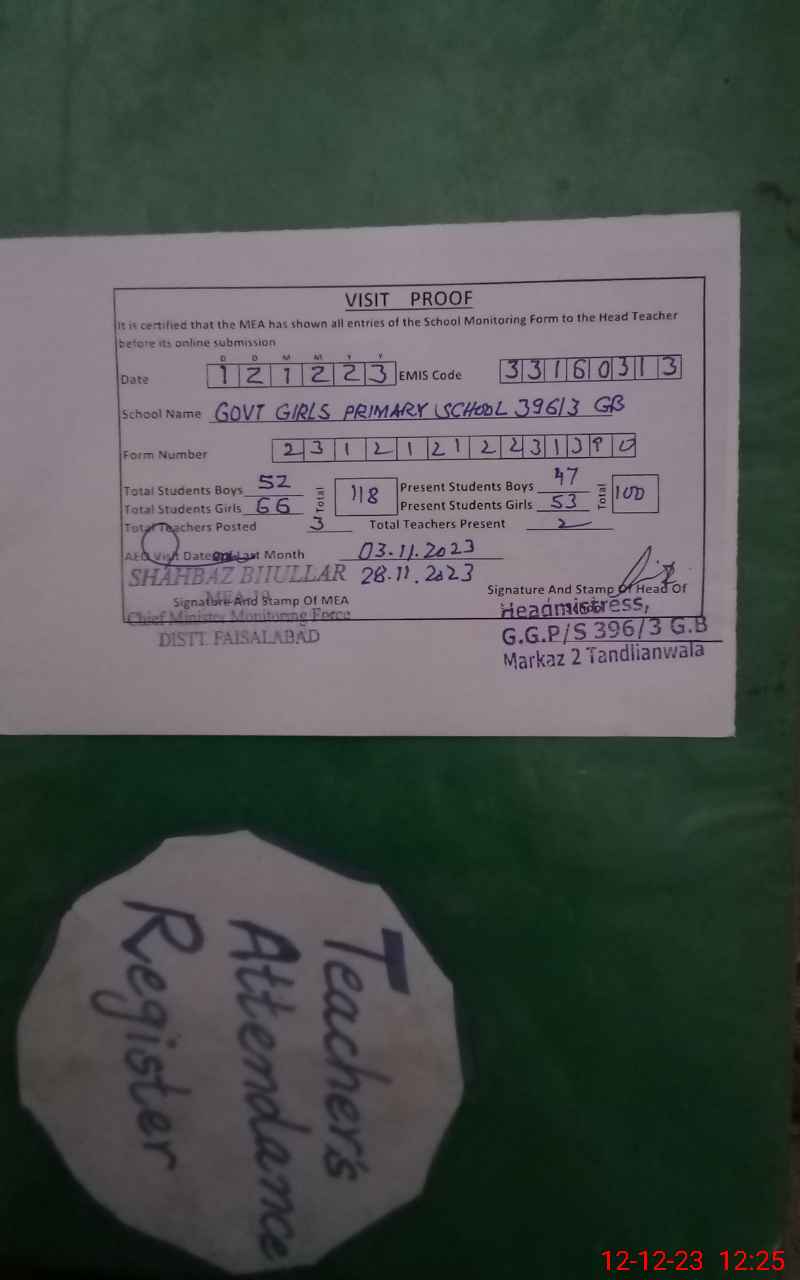 VISIT PROOF
It is certified that the MEA has shown all entries of the School Monitoring Form to the Head Teacher
before its online submission
D D M M Y Y
Date 1 2 1 2 2 3 EMIS Code 3 3 1 6 0 3 1 3
School Name GOVT GIRLS PRIMARY SCHOOL 396/3 GB
Form Number 2 3 1 2 1 2 1 2 2 3 1 3 9 0
Total Students Boys 52 Total 118 Present Students Boys 47 Total 100
Total Students Girls 66 Present Students Girls 53
Total Teachers Posted 3 Total Teachers Present 2
AEO Visit Date Last Month 03.11.2023
SHAHBAZ BHULLAR 28.11.2023
Signature And Stamp Of MEA Signature And Stamp Of Head Of
Chief Minister Monitoring Force
DISTT. FAISALABAD
Headmistress,
G.G.P/S 396/3 G.B
Markaz 2 Tandlianwala
Teacher's
Attendance
Register
12-12-23 12:25